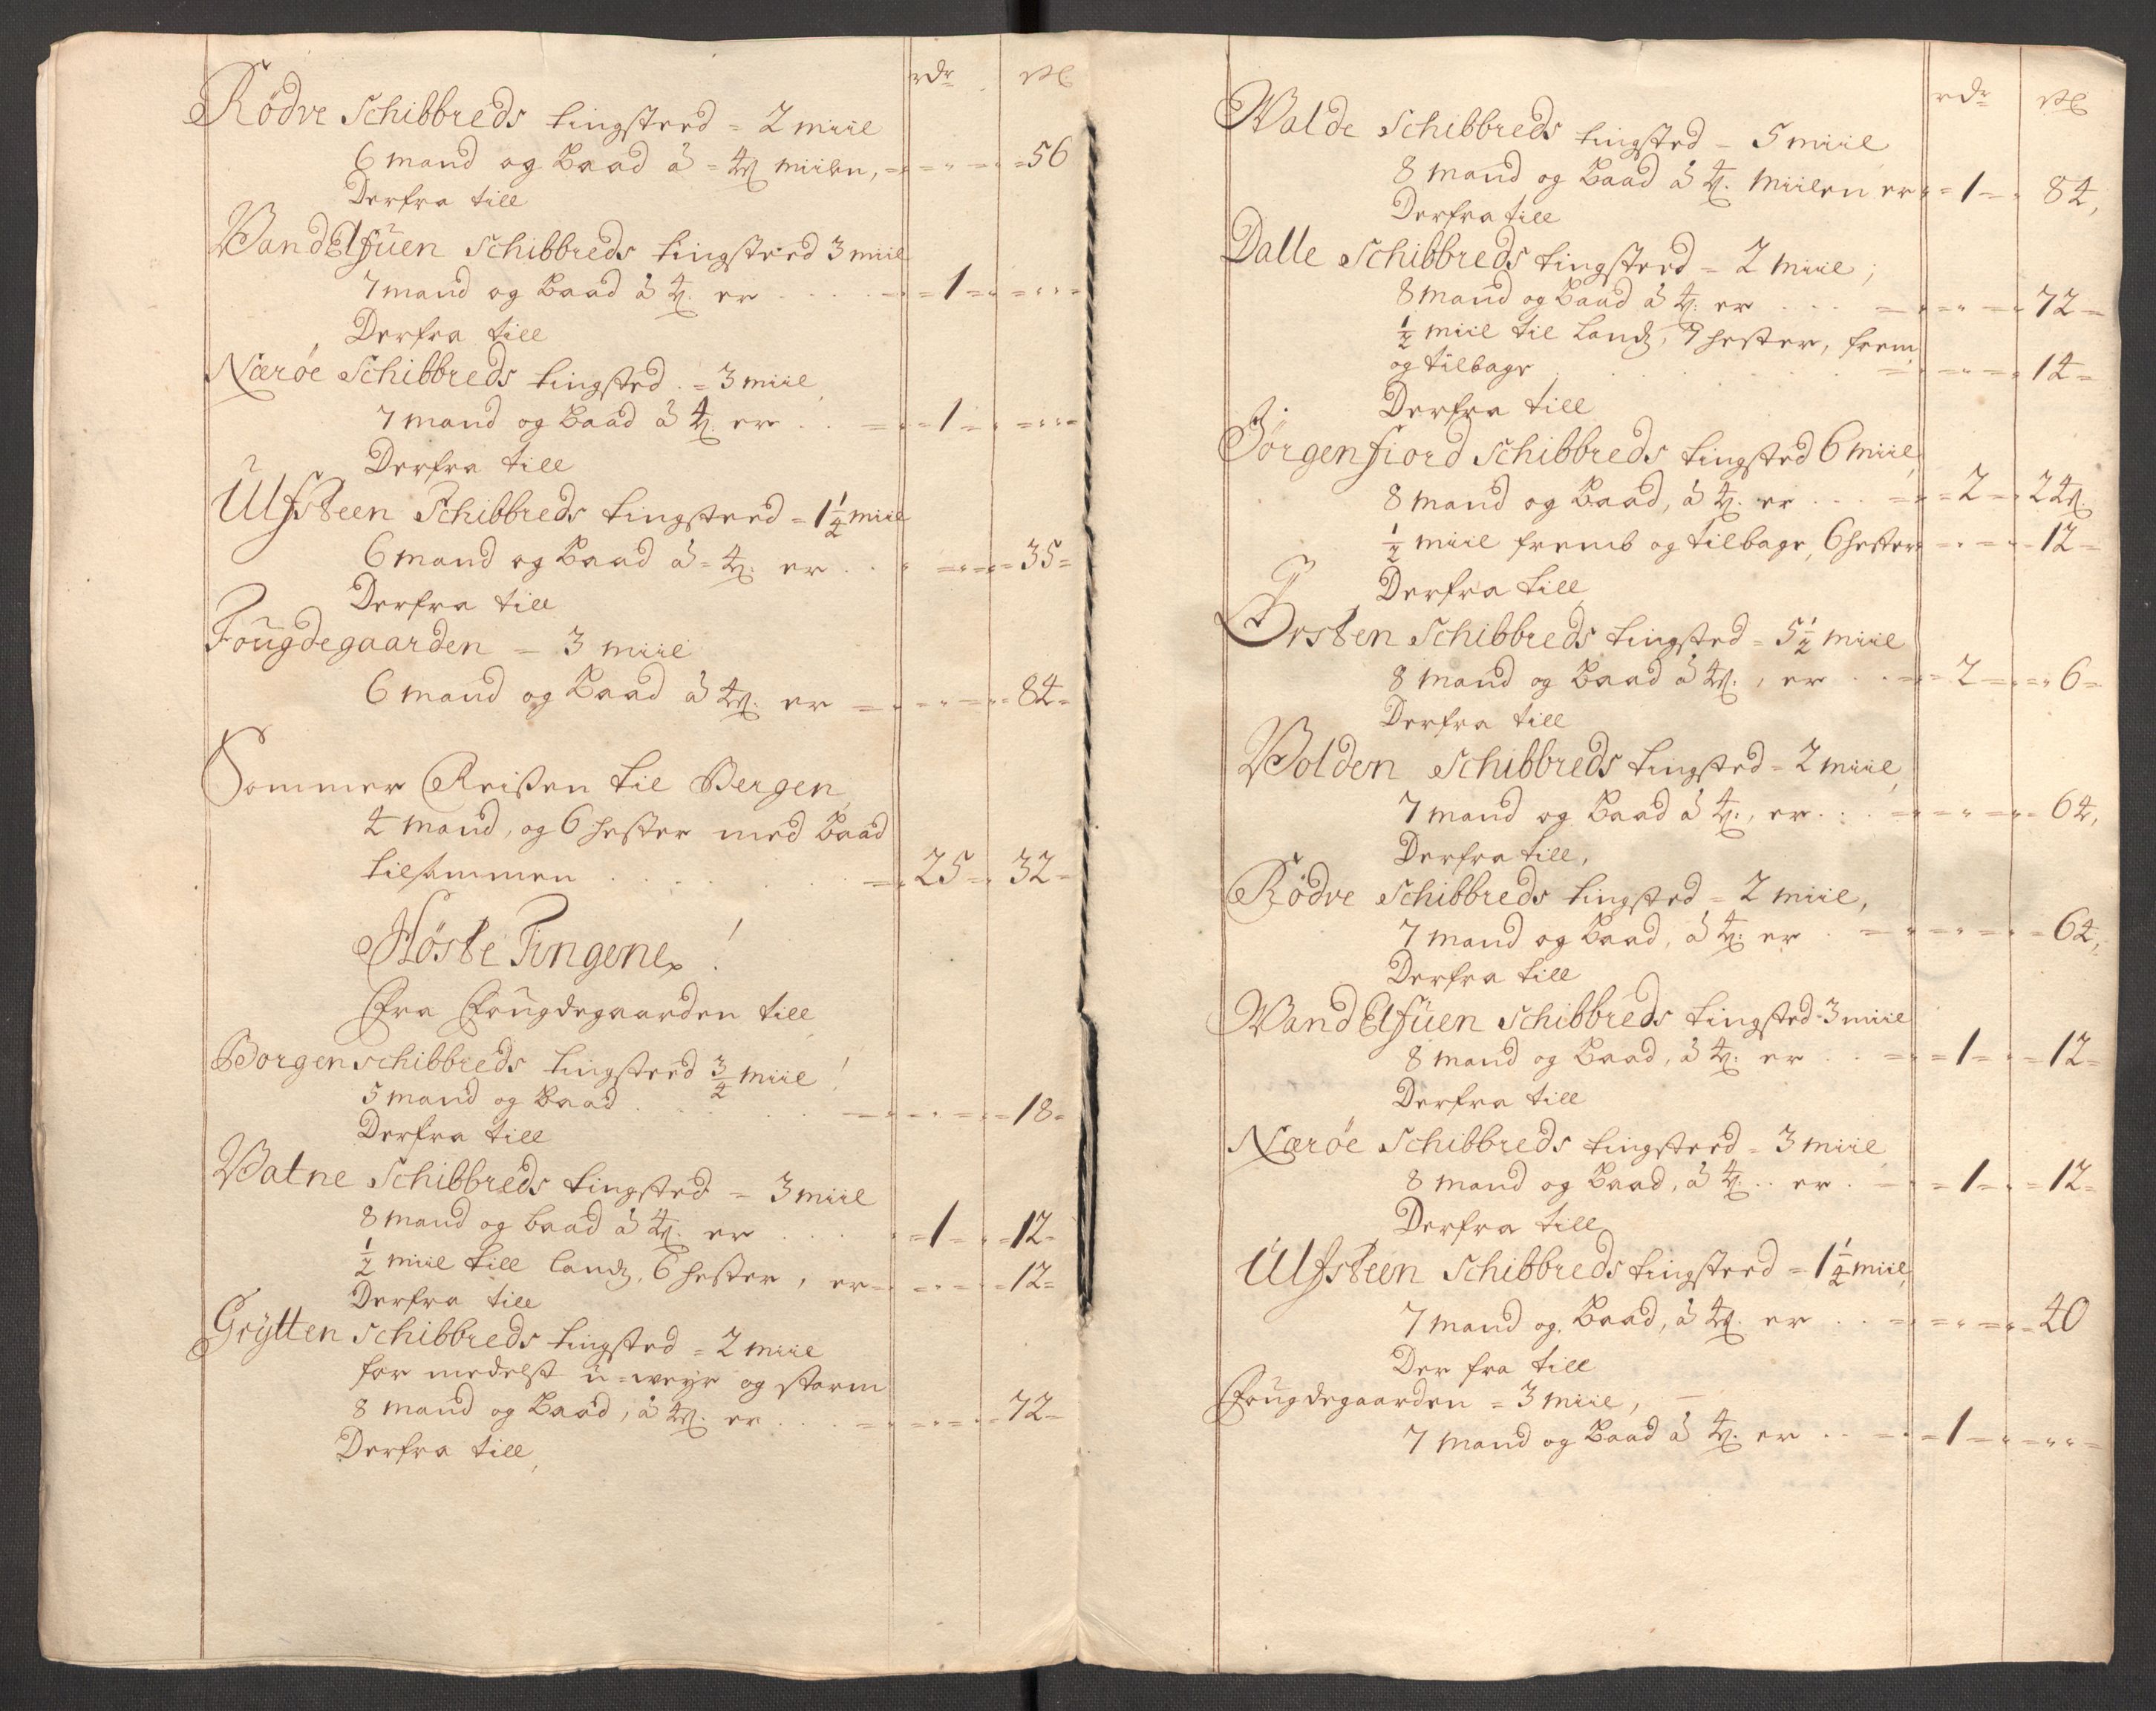 rdr ßl
Rödve Schibbreds tingsted = 2 miil
6 mand og Baad à = 4 ß miilen, 56
Derfra till
VandElfuen Schibbreds tingsted 3 miil
7 mand og Baad à 4 ß. er . . . 1
Derfra till
Nærøe Schibbreds tingsted = 3 miil
7 mand og Baad à 4 ß. er . . 1
Derfra till
Ulfsteen Schibbreds tingsted = 1 1/4 miil
6 mand og Baad à = 4 ß. er . . 35
Derfra till
Fougdegaarden = 3 miil
6 mand og Baad à 4 ß. er 84
Sommer Reisen til Bergen,
4 mand, og 6 hester med Baad
tilsammen . . . . 25 32
Høste Tingene!
Fra Fougdegaarden till
Borgen schibbreds tingsted 3/4 miil!
5 mand og Baad . . . 18
Derfra till
Vatne Schibbreds tingsted = 3 miil
8 mand og baad à 4 ß. er . . . 1 12
1/2 miil till landz, 6 hester, er 12
Derfra till
Grÿtten Schibbreds tingsted = 2 miil
formedelst u=weyr og storm
8 mand og Baad, à 4 ß. er . . . 72
Derfra till,
rdr ßl
Walde Schibbreds tingsted = 5 miil
8 mand og Baad à 4 ß. miilen er 1 84,
Derfra till
Dalle Schibbreds tingsted = 2 miil;
8 mand og Baad à 4 ß. er . . . 72
1/2 miil til landz, 7 hester, frem
og tilbage . . . . 14
Derfra till
Jörgenfiord Schibbreds tingsted 6 miil
8 mand og Baad, à 4 ß. er . . . 2 24 ß.
1/2 miil fremb og tilbage, 6 hester 12
Derfra till
Örsten Schibbreds tingsted = 5 1/2 miil
8 mand og Baad à 4 ß., er . . 2 6
Derfra till
Volden Schibbreds tingsted = 2 miil
7 mand og Baad à 4 ß., er . . . 64,
Derfra till,
Rödve Schibbreds tingsted = 2 miil,
7 mand og Baad, à 4 ß. er . 64,
Derfra till
WandElfuen Schibbreds tingsted = 3 miil
8 mand og Baad, à 4 ß. er . . 1 12
Derfra till
Nærøe Schibbreds tingsted = 3 miil
8 mand og Baad, à 4 ß. . er . 1 12
Derfra till
Ulfsteen Schibbreds tingsted = 1 1/4 miil,
7 mand og Baad, à 4 ß. er . . 40
Der fra till
Fougdegaarden = 3 miil,
7 mand og Baad à 4 ß. er . . 1